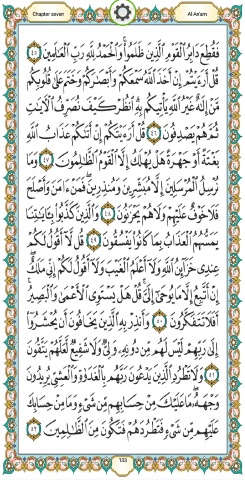 Chapter seven
Al-An'am
فَقُطِعَ دَابِرُ ٱلْقَوْمِ ٱلَّذِينَ ظَلَمُوا۟ وَٱلْحَمْدُ لِلَّهِ رَبِّ ٱلْعَٰلَمِينَ ٤٥
قُلْ أَرَءَيْتُمْ إِنْ أَخَذَ ٱللَّهُ سَمْعَكُمْ وَأَبْصَٰرَكُمْ وَخَتَمَ عَلَىٰ قُلُوبِكُم
مَّنْ إِلَٰهٌ غَيْرُ ٱللَّهِ يَأْتِيكُم بِهِ ٱنظُرْ كَيْفَ نُصَرِّفُ ٱلْءَايَٰتِ
ثُمَّ هُمْ يَصْدِفُونَ ٤٦ قُلْ أَرَءَيْتَكُمْ إِنْ أَتَىٰكُمْ عَذَابُ ٱللَّهِ
بَغْتَةً أَوْ جَهْرَةً هَلْ يُهْلَكُ إِلَّا ٱلْقَوْمُ ٱلظَّٰلِمُونَ ٤٧ وَمَا
نُرْسِلُ ٱلْمُرْسَلِينَ إِلَّا مُبَشِّرِينَ وَمُنذِرِينَ فَمَنْ ءَامَنَ وَأَصْلَحَ
فَلَا خَوْفٌ عَلَيْهِمْ وَلَا هُمْ يَحْزَنُونَ ٤٨ وَٱلَّذِينَ كَذَّبُوا۟ بِـَٔايَٰتِنَا
يَمَسُّهُمُ ٱلْعَذَابُ بِمَا كَانُوا۟ يَفْسُقُونَ ٤٩ قُل لَّآ أَقُولُ لَكُمْ
عِندِى خَزَآئِنُ ٱللَّهِ وَلَآ أَعْلَمُ ٱلْغَيْبَ وَلَآ أَقُولُ لَكُمْ إِنِّى مَلَكٌ
إِنْ أَتَّبِعُ إِلَّا مَا يُوحَىٰٓ إِلَىَّ قُلْ هَلْ يَسْتَوِى ٱلْأَعْمَىٰ وَٱلْبَصِيرُ
أَفَلَا تَتَفَكَّرُونَ ٥٠ وَأَنذِرْ بِهِ ٱلَّذِينَ يَخَافُونَ أَن يُحْشَرُوٓا۟
إِلَىٰ رَبِّهِمْ لَيْسَ لَهُم مِّن دُونِهِۦ وَلِىٌّ وَلَا شَفِيعٌ لَّعَلَّهُمْ يَتَّقُونَ
٥١ وَلَا تَطْرُدِ ٱلَّذِينَ يَدْعُونَ رَبَّهُم بِٱلْغَدَوٰةِ وَٱلْعَشِىِّ يُرِيدُونَ
وَجْهَهُۥ مَا عَلَيْكَ مِنْ حِسَابِهِم مِّن شَىْءٍ وَمَا مِنْ حِسَابِكَ
عَلَيْهِم مِّن شَىْءٍ فَتَطْرُدَهُمْ فَتَكُونَ مِنَ ٱلظَّٰلِمِينَ ٥٢
133